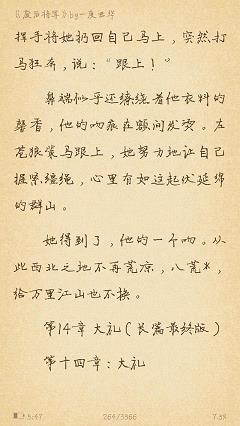 《寂后待年》by一度君华
挥手将她扔回自己马上，突然打
马狂奔，说：“跟上！”
鼻端似乎还缭绕着他衣料的
馨香，他的吻痕在额间发烫。左
苍狼策马跟上，她努力地让自己
握紧缰绳，心里有如这起伏延绵
的群山。
她得到了，他的一个吻。从
此西北之地不再荒凉，八荒*，
给万里江山也不换。
第14章 大礼（长篇最终版）
第十四章：大礼
5:47 264/3566 7.3%